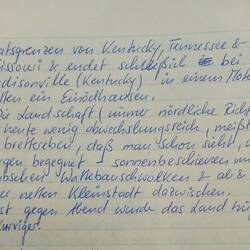 atsgrenzen von Kentucky, Tennessee &
issouri & endet schließlich bei
disonville (Kentucky) in einem Hote
ten ein Einödhausen.
Die Landschaft (immer nördliche Richt
heute wenig abwechslungsreich, meist
bretteben, daß man schon sieht, w
rgen begegnet - sonnenbeschienen mi
bschen Wattebauschwolken & ab &
er netten Kleinstadt dazwischen.
st gegen Abend wurde das Land hü
kurviger.